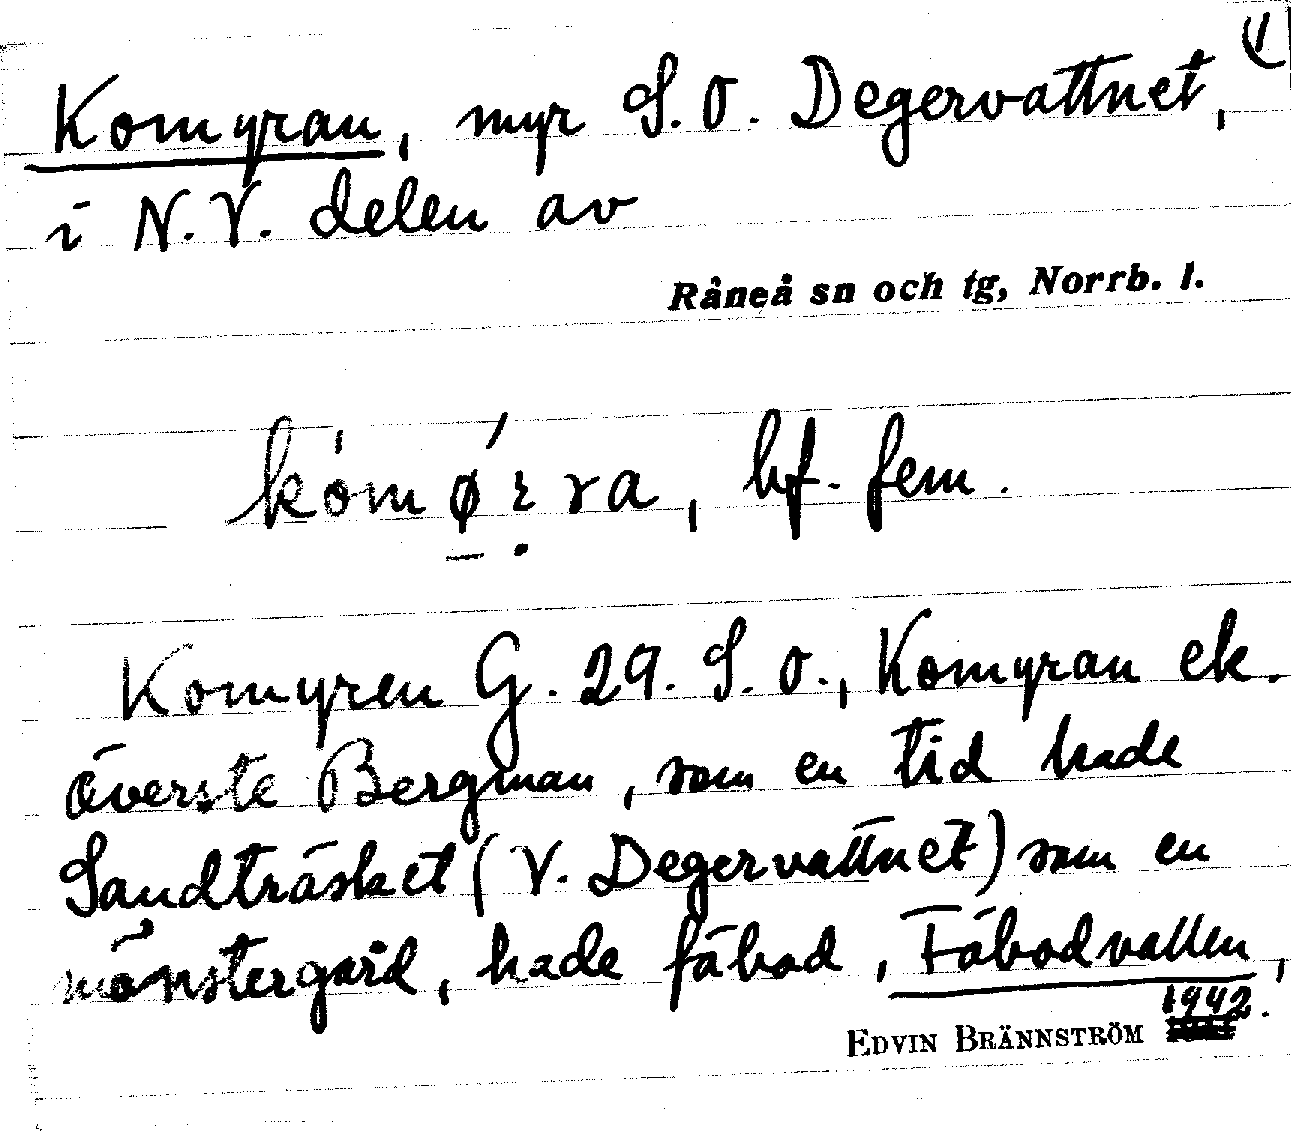 1)
Komyran, myr S.O. Degervattnet,
i N.V. delen av
Råneå sn och tg, Norrb. l.
bf. fem.
Komyren G. 29. S.O., Komyran ek.
överste Bergman, som en tid hade
Sandträsket (V. Degervattnet) som en
mönstergård, hade fäbod, Fäbodvallen,
EDVIN BRÄNNSTRÖM 1942.